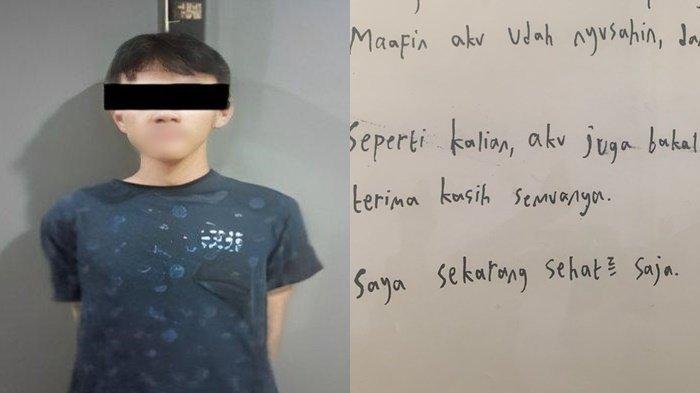 Maafin aku udah nyusahin, da
Seperti kalian, aku juga bakal
terima kasih semuanya.
Saya sekarang sehat² saja.